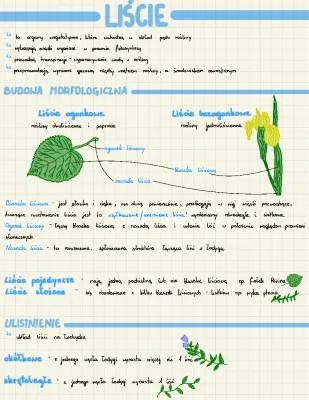 LIŚCIE
to organy wegetatywne, które wchodzą w skład pędu rośliny
wytwarzają związki organiczne w procesie fotosyntezy
prowadzą transpirację - wyparowywanie wody z rośliny
przeprowadzają wymianę gazową między wnętrzem rośliny, a środowiskiem zewnętrznym
BUDOWA MORFOLOGICZNA
Liście ogonkowe
Liście bezogonkowe
rośliny dwuliścienne i paprocie
rośliny jednoliścienne
ogonek liściowy
blaszka liściowa
nasada liścia
Blaszka liściowa - jest płaska i cienka, ma dużą powierzchnię, przebiegają w niej wiązki przewodzące,
liścia jest to użyłkowanie/unerwienie liścia, wyróżniamy równoległe i siatkowe.
Ogonek liściowy - łączy blaszkę liściową z nasadą liścia i ustawia liść w położeniu względem promieni
słonecznych.
Nasada liścia - to rozszerzona, spłaszczona struktura łącząca liść z łodygą.
Liście pojedyncze - mają jedną, pojedynczą lub nie blaszkę liściową, np. fiołek
Liście złożone - są zbudowane z kilku blaszek liściowych - listków np.
ULISTNIENIE
układ liści na łodydze
okółkowe - z jednego węzła łodygi wyrasta więcej niż 1 liść
skrętoległe - z jednego węzła łodygi wyrasta 1 liść